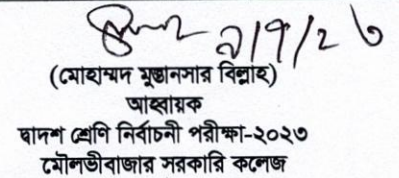 ৯/৭/২৩
(মোহাম্মদ মুন্তানসার বিল্লাহ)
আহ্বায়ক
দ্বাদশ শ্রেণি নির্বাচনী পরীক্ষা-২০২৩
মৌলভীবাজার সরকারি কলেজ